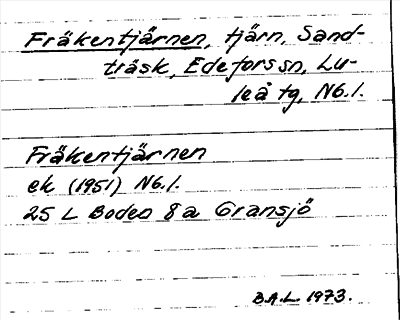 Fräkentjärnen, tjärn, Sand-
träsk, Edefors sn, Lu-
leå tg, Nb.l.
Fräkentjärnen
ek (1951) Nb.l.
25 L Boden 8a Gransjö
B.A.L 1973.